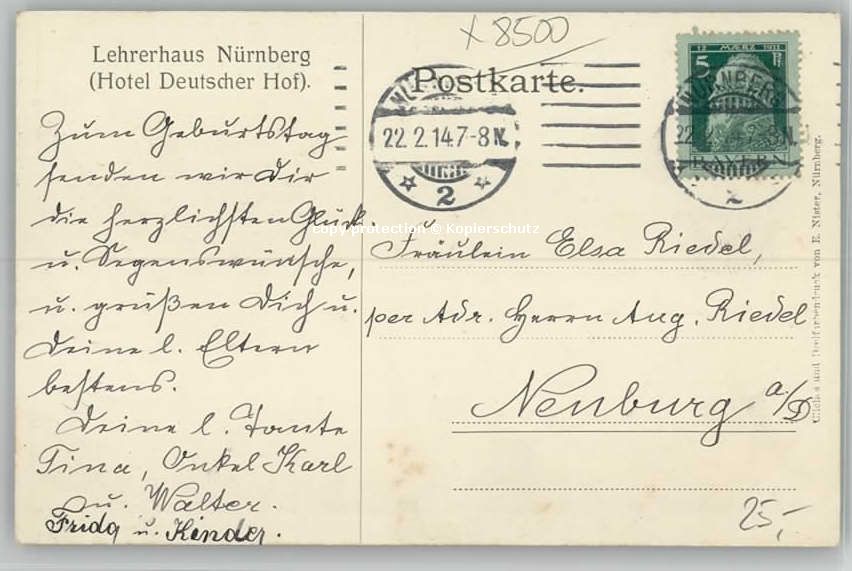 Lehrerhaus Nürnberg
(Hotel Deutscher Hof).
Zum Geburtstag
senden wir Dir
die herzlichsten Glück-
u. Segenswünsche,
u. grüßen Dich u.
Deine l. Eltern
bestens.
Deine l. Tante
Tina, Onkel Karl
u. Walter.
Frida u. Kinder.
x 8500
Postkarte.
22. 2. 14 7-8 N.
2
12 MAERZ 1911
5 Pf
BAYERN
NÜRNBERG
2
copy protection © Kopierschutz
Fräulein Elsa Riedel,
per Adr. Herrn Aug. Riedel
Neuburg a/D
25,-
Clichés und Dreifarbendruck von E. Nister, Nürnberg.